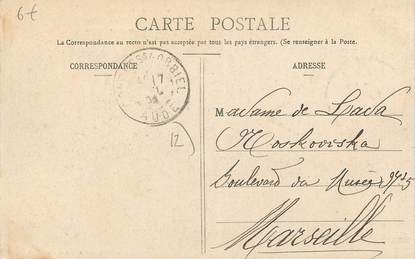 6€
CARTE POSTALE
La Correspondance au recto n'est pas acceptée par tous les pays étrangers. (Se renseigner à la Poste.
CORRESPONDANCE
ADRESSE
ORBIEL
17
AUDE
12
Madame de Lada
Moskoviska
Boulevard du Musée
Marseille